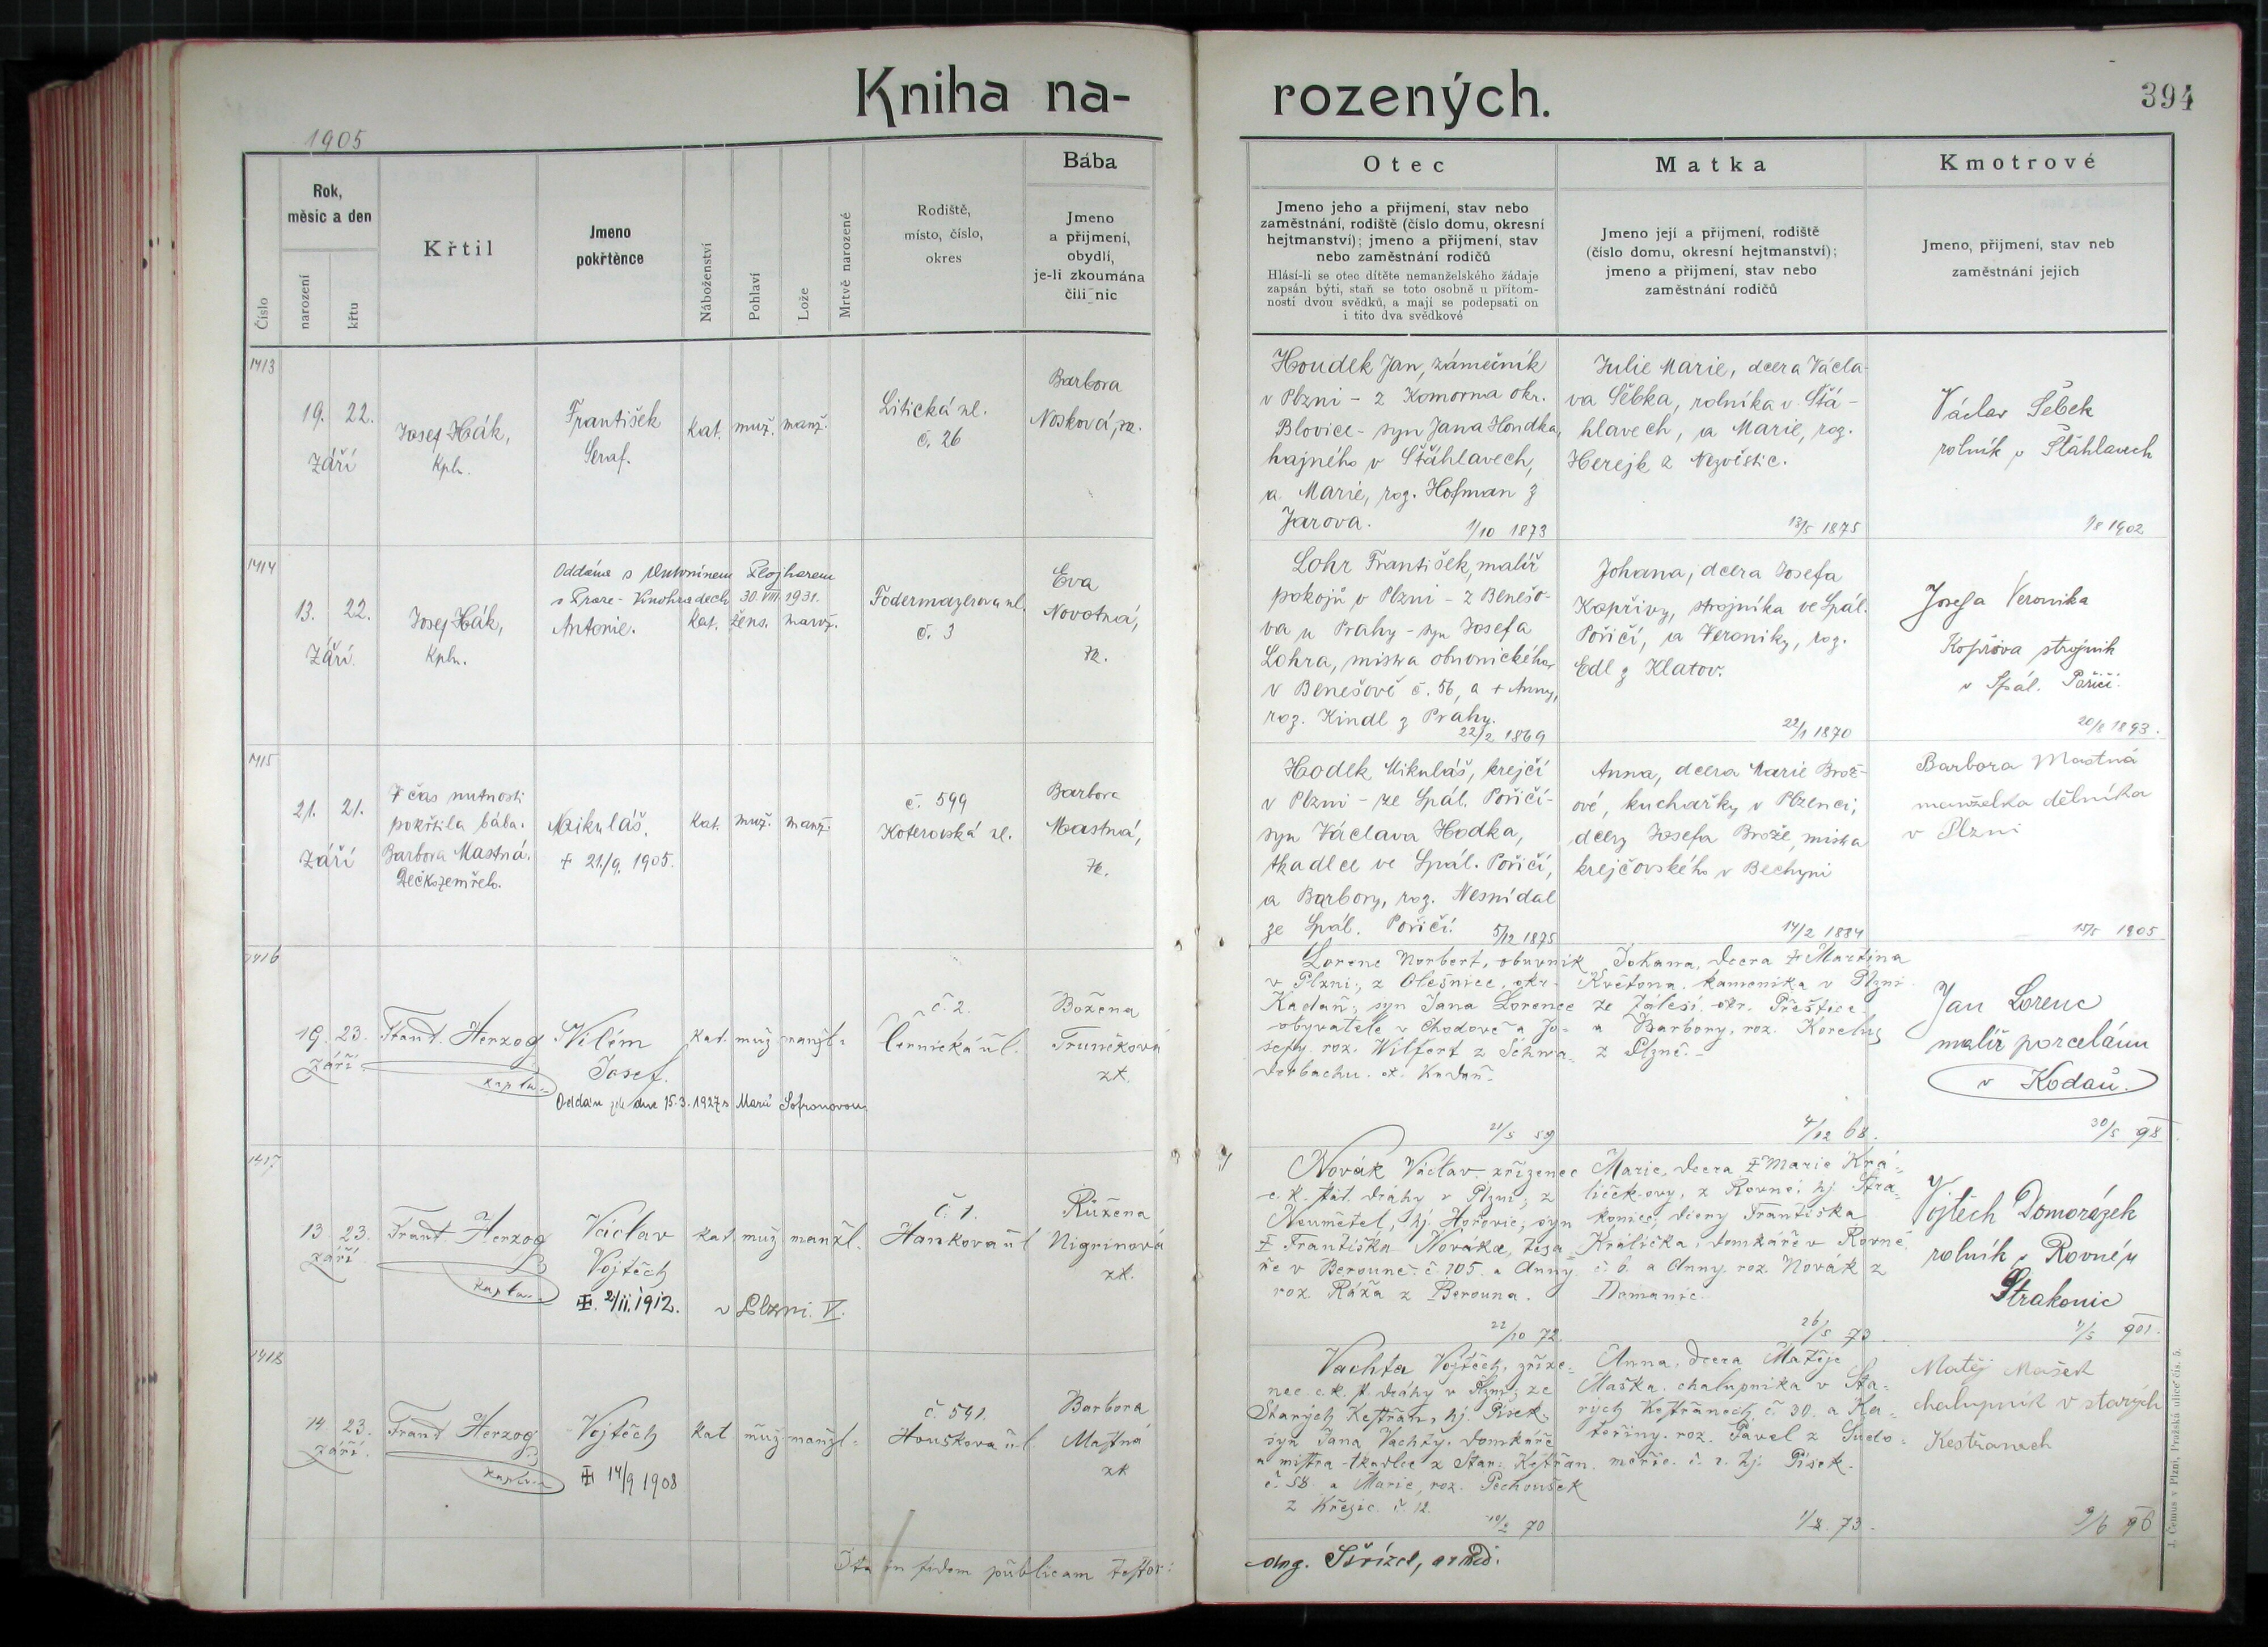 Kniha na-
rozených.
394
1905
Číslo
Rok,
měsíc a den
narození
křtu
Křtil
Jmeno
pokřtěnce
Náboženství
Pohlaví
Lože
Mrtvě narozené
Rodiště,
místo, číslo,
okres
Bába
Jmeno
a přijmení,
obydlí,
je-li zkoumána
čili nic
Otec
Jmeno jeho a přijmení, stav nebo
zaměstnání, rodiště (číslo domu, okresní
hejtmanství); jmeno a přijmení, stav
nebo zaměstnání rodičů
Hlásí-li se otec dítěte nemanželského žádaje
zapsán býti, staň se toto osobně u přítom-
nosti dvou svědků, a mají se podepsati on
i tito dva svědkové
Matka
Jmeno její a přijmení, rodiště
(číslo domu, okresní hejtmanství);
jmeno a přijmení, stav nebo
zaměstnání rodičů
Kmotrové
Jmeno, přijmení, stav neb
zaměstnání jejich
1413
19. 22.
Září
Josef Hák,
Kpln.
František
Seraf.
Kat. muž. manž.
Litická ul.
č. 26
Barbora
Nosková, zk.
Houdek Jan, zámečník
v Plzni - z Komorna okr.
Blovice - syn Jana Houdka,
hajného v Šťáhlavech,
a Marie, roz. Hofman z
Jarova.
1/10 1873
Julie Marie, dcera Václa-
va Šebka, rolníka v Šťá-
hlavech, a Marie, roz.
Herejk z Nezvěstic.
13/5 1875
Václav Šebek
rolník v Šťáhlavech
1/8 1902
1414
13. 22.
Září
Josef Hák,
Kpln.
Oddána s Antonínem Plojharem
v Praze - Vinohradech 30. VIII. 1931.
Antonie.
Kat. žens. manž.
Fodermayerova ul.
č. 3
Eva
Novotná,
zk.
Lohr František, malíř
pokojů v Plzni - z Benešo-
va u Prahy - syn Josefa
Lohra, mistra obuvnického
v Benešově č. 56, a + Anny,
roz. Kindl z Prahy.
22/2 1869
Johana, dcera Josefa
Kopřivy, strojníka ve Spál.
Poříčí, a Veroniky, roz.
Edl z Klatov.
22/1 1870
Josefa Veronika
Kopřiva strojník
v Spál. Poříčí.
20/8 1893.
1415
21. 21.
Září
V čas nutnosti
pokřtila bába.
Barbora Mastná.
Děcko zemřelo.
Mikuláš.
+ 21./9. 1905.
Kat. muž. manž.
č. 599
Koterovská ul.
Barbora
Mastná,
zk.
Hodek Mikuláš, krejčí
v Plzni - ze Spál. Poříčí -
syn Václava Hodka,
tkadlce ve Spál. Poříčí,
a Barbory, roz. Nesnídal
ze Spál. Poříčí.
5/12 1875
Anna, dcera Marie Brož-
ové, kuchařky v Plzenci,
dcery Josefa Brože, mistra
krejčovského v Bechyni
14/2 1884
Barbora Mastná
manželka dělníka
v Plzni
15/5 1905
1416
19. 23.
Září
Frant. Herzog
kaplan
Vilém
Josef.
Oddán zde dne 15.3.1927 s Marií Sofronovou
Kat. muž. manžl.
č. 2.
Černická ul.
Božena
Trunečkova
zk.
Lorenc Norbert, obuvník
v Plzni, z Olešnice, okr.
Kadaň, syn Jana Lorence
obyvatele v Chodově a Jo-
sefy roz. Wilfert z Schwa-
derbachu. ok. Kadaň.
21/5 59
Johana, dcera + Martina
Květona, kameníka v Plzni
ze Zálesí, okr. Přeštice
a Barbory, roz. Korelus
z Plzně.
4/12 68.
Jan Lorenc
malíř porcelánu
v Kodaů.
30/5 98
1417
13. 23.
Září
Frant. Herzog
kaplan
Václav
Vojtěch
+. 2/II. 1912. v Plzni. V.
Kat. muž manžl.
č. 1.
Hankova ul
Růžena
Nigrinová
zk.
Novák Václav, zřízenec
c. k. stát. dráhy v Plzni, z
Neumětel, hj. Hořovic, syn
+ Františka Nováka, tesa-
ře v Berouně č. 105. a Anny
roz. Ráža z Berouna.
22/10 72.
Marie, dcera + Marie Krá-
líčkovy, z Rovné, hj. Stra-
konic, dcery Františka
Králíčka, domkáře v Rovné
č. 6. a Anny, roz. Novák z
Domanic.
26/5 73
Vojtěch Domorázek
rolník v Rovné u
Strakonic
1/5 901.
1418
14. 23.
Září.
Frant Herzog
kaplan
Vojtěch
+ 14/9 1908
Kat muž manžl.
č. 541.
Houškova ul
Barbora
Mastná
zk
Vachta Vojtěch, zříze-
nec c.k. st. dráhy v Plzni, ze
Starých Kestřan, hj. Písek,
syn Jana Vachty, domkáře
a mistra tkadlce z Star. Kestřan
č. 58 a Marie, roz. Pechoušek
z Křešic č. 12.
10/2 70
Anna, dcera Matěje
Maška, chalupníka v Sta-
rých Kestřanech č. 30. a Ka-
teřiny, roz. Pavel z Sudo-
měřic č. 2. hj. Písek.
1/8. 73.
Matěj Mašek
chalupník v starých
Kestřanech
9/6 96
Ita in fidem publicam testor:
J. Čemus v Plzni, Pražská ulice čís. 5.